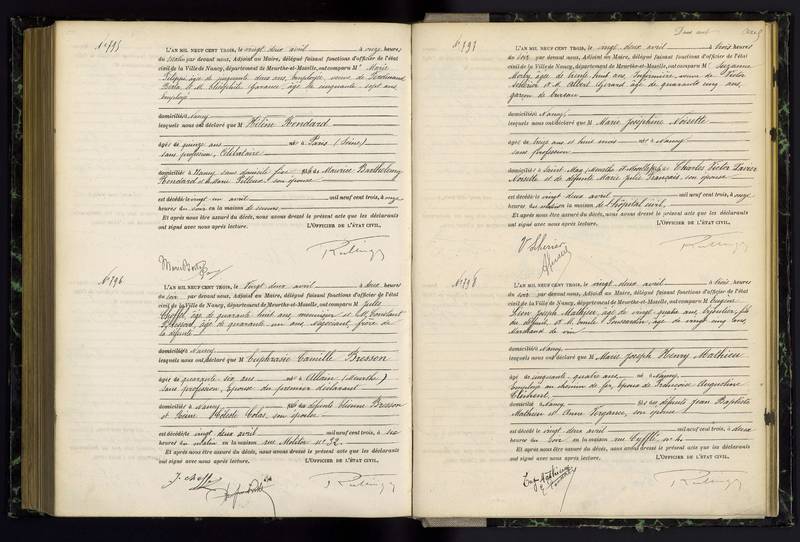 N° 795
L'AN MIL NEUF CENT TROIS, le vingt deux avril à onze heures
du matin par devant nous, Adjoint au Maire, délégué faisant fonctions d'officier de l'état
civil de la Ville de Nancy, département de Meurthe-et-Moselle, ont comparu M Marie
âgée de cinquante deux ans, employée, veuve de Ferdinand
et M. Théophile âgé de cinquante sept ans,
employé
domiciliés à Nancy
lesquels nous ont déclaré que M Hélène Rondard
âgée de quinze ans née à Paris (Seine)
sans profession, Célibataire
domiciliée à Nancy sans domicile fixe fille de Maurice Barthélemy
Rondard et de son épouse
est décédée vingt un avril mil neuf cent trois, à onze
heures du soir en la maison de secours
Et après nous être assuré du décès, nous avons dressé le présent acte que les déclarants
ont signé avec nous après lecture. L'OFFICIER DE L'ÉTAT CIVIL,
N° 796
L'AN MIL NEUF CENT TROIS, le vingt deux avril à deux heures
du soir par devant nous, Adjoint au Maire, délégué faisant fonctions d'officier de l'état
civil de la Ville de Nancy, département de Meurthe-et-Moselle, ont comparu M Jules
âgé de quarante huit ans, menuisier et M. Constant
Bresson, âgé de quarante un ans, négociant, frère de
la défunte
domiciliés à Nancy
lesquels nous ont déclaré que M Euphrasie Camille Bresson
âgée de quarante six ans née à Allain (Meurthe)
sans profession, épouse du premier déclarant
domiciliée à Nancy fille de défunts Etienne Bresson
et Colas, son épouse
est décédée vingt deux avril mil neuf cent trois, à six
heures du matin en la maison rue Molitor n° 32
Et après nous être assuré du décès, nous avons dressé le présent acte que les déclarants
ont signé avec nous après lecture. L'OFFICIER DE L'ÉTAT CIVIL,
N° 797
L'AN MIL NEUF CENT TROIS, le vingt deux avril à trois heures
du soir par devant nous, Adjoint au Maire, délégué faisant fonctions d'officier de l'état
civil de la Ville de Nancy, département de Meurthe-et-Moselle, ont comparu M Suzanne
âgée de trente huit ans, Infirmière, veuve de Victor
et M. Albert Gérard âgé de quarante cinq ans,
garçon de bureau
domiciliés à Nancy
lesquels nous ont déclaré que M Marie Joséphine Noisette
âgée de treize ans et huit mois née à Nancy
sans profession
domiciliée à Saint Max (Meurthe et Moselle) fille de Charles Victor Xavier
Noisette et de défunte Marie Julie Français, son épouse
est décédée vingt deux avril mil neuf cent trois, à onze
heures du matin en la maison de l'hôpital civil
Et après nous être assuré du décès, nous avons dressé le présent acte que les déclarants
ont signé avec nous après lecture. L'OFFICIER DE L'ÉTAT CIVIL,
N° 798
L'AN MIL NEUF CENT TROIS, le vingt deux avril à trois heures
du soir par devant nous, Adjoint au Maire, délégué faisant fonctions d'officier de l'état
civil de la Ville de Nancy, département de Meurthe-et-Moselle, ont comparu M Eugène
Léon Joseph Mathieu, âgé de vingt quatre ans, bijoutier, fils
du défunt, et M. Emile âgé de vingt cinq ans,
marchand de vin
domiciliés à Nancy
lesquels nous ont déclaré que M Marie Joseph Henry Mathieu
âgé de cinquante quatre ans né à Nancy
employé au chemin de fer, époux de Françoise Augustine
domicilié à Nancy fils de défunts Jean Baptiste
Mathieu et Anne son épouse
est décédé le vingt deux avril mil neuf cent trois, à deux
heures du soir en la maison rue
Et après nous être assuré du décès, nous avons dressé le présent acte que les déclarants
ont signé avec nous après lecture. L'OFFICIER DE L'ÉTAT CIVIL,